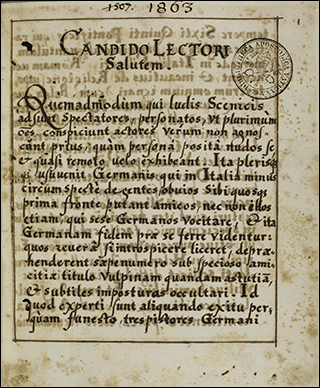 1507. 1863
CANDIDO LECTORI
Salutem.
Quemadmodum qui ludis Scenicis
adsunt Spectatores, personatos, vt plurimum
oēs conspiciunt actores verum non agnos-
cunt prius, quam personā positā nudos se
& quasi remoto uelo exhibeant. Ita plerisq
usuuenit Germanis qui in Italia minus
circumspecte degentes, obuios Sibi quosq
prima fronte putant amicos, nec non
etiam, qui sese Germanos Vocitare, & ita
Germanam fidem præ se ferre videntur:
quos reuerâ si introspicere liceret, depræ-
henderent sæpenumero sub specioso ami-
citiæ titulo Vulpinam quandam astutiā,
& subtiles imposturas occultari. Id
quod experti sunt aliquando exitu per-
quam funesto tres pistores Germani